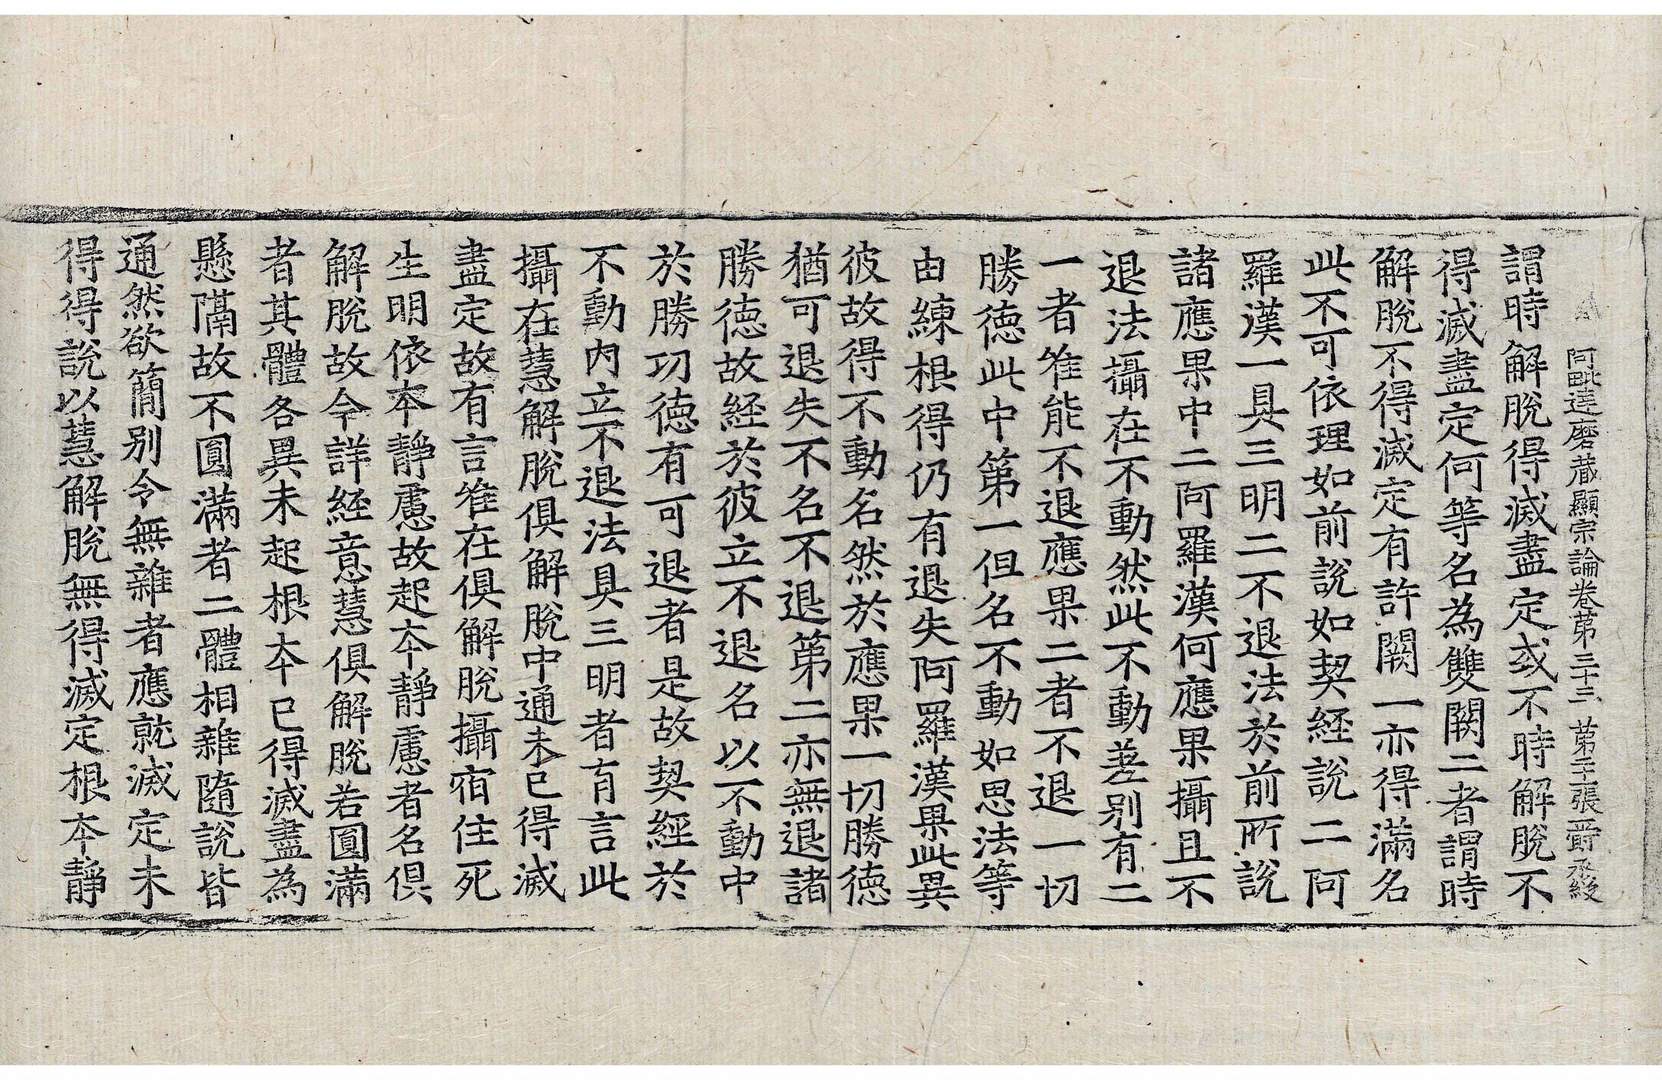 阿毗達磨蔵顯宗論卷第三十三 第二十張 爵 承綬
謂時解脫得滅盡定或不時解脫不
得滅盡定何等名為雙闕二者謂時
解脫不得滅定有許闕一亦得滿名
此不可依理如前說如契経說二阿
羅漢一具三明二不退法於前所說
諸應果中二阿羅漢何應果攝且不
退法攝在不動然此不動差别有二
一者唯能不退應果二者不退一切
勝徳此中第一但名不動如思法等
由練根得仍有退失阿羅漢果此異
彼故得不動名然於應果一切勝徳
猶可退失不名不退第二亦無退諸
勝徳故経於彼立不退名以不動中
於勝功徳有可退者是故契経於
不動內立不退法具三明者有言此
攝在慧解脫俱解脫中通未已得滅
盡定故有言唯在俱解脫攝宿住死
生明依本靜慮故起本靜慮者名俱
解脫故今詳経意慧俱解脫若圓滿
者其體各異未起根本已得滅盡為
懸隔故不圓滿者二體相雜隨說皆
通然欲簡别令無雜者應就滅定未
得得說以慧解脫無得滅定根本靜